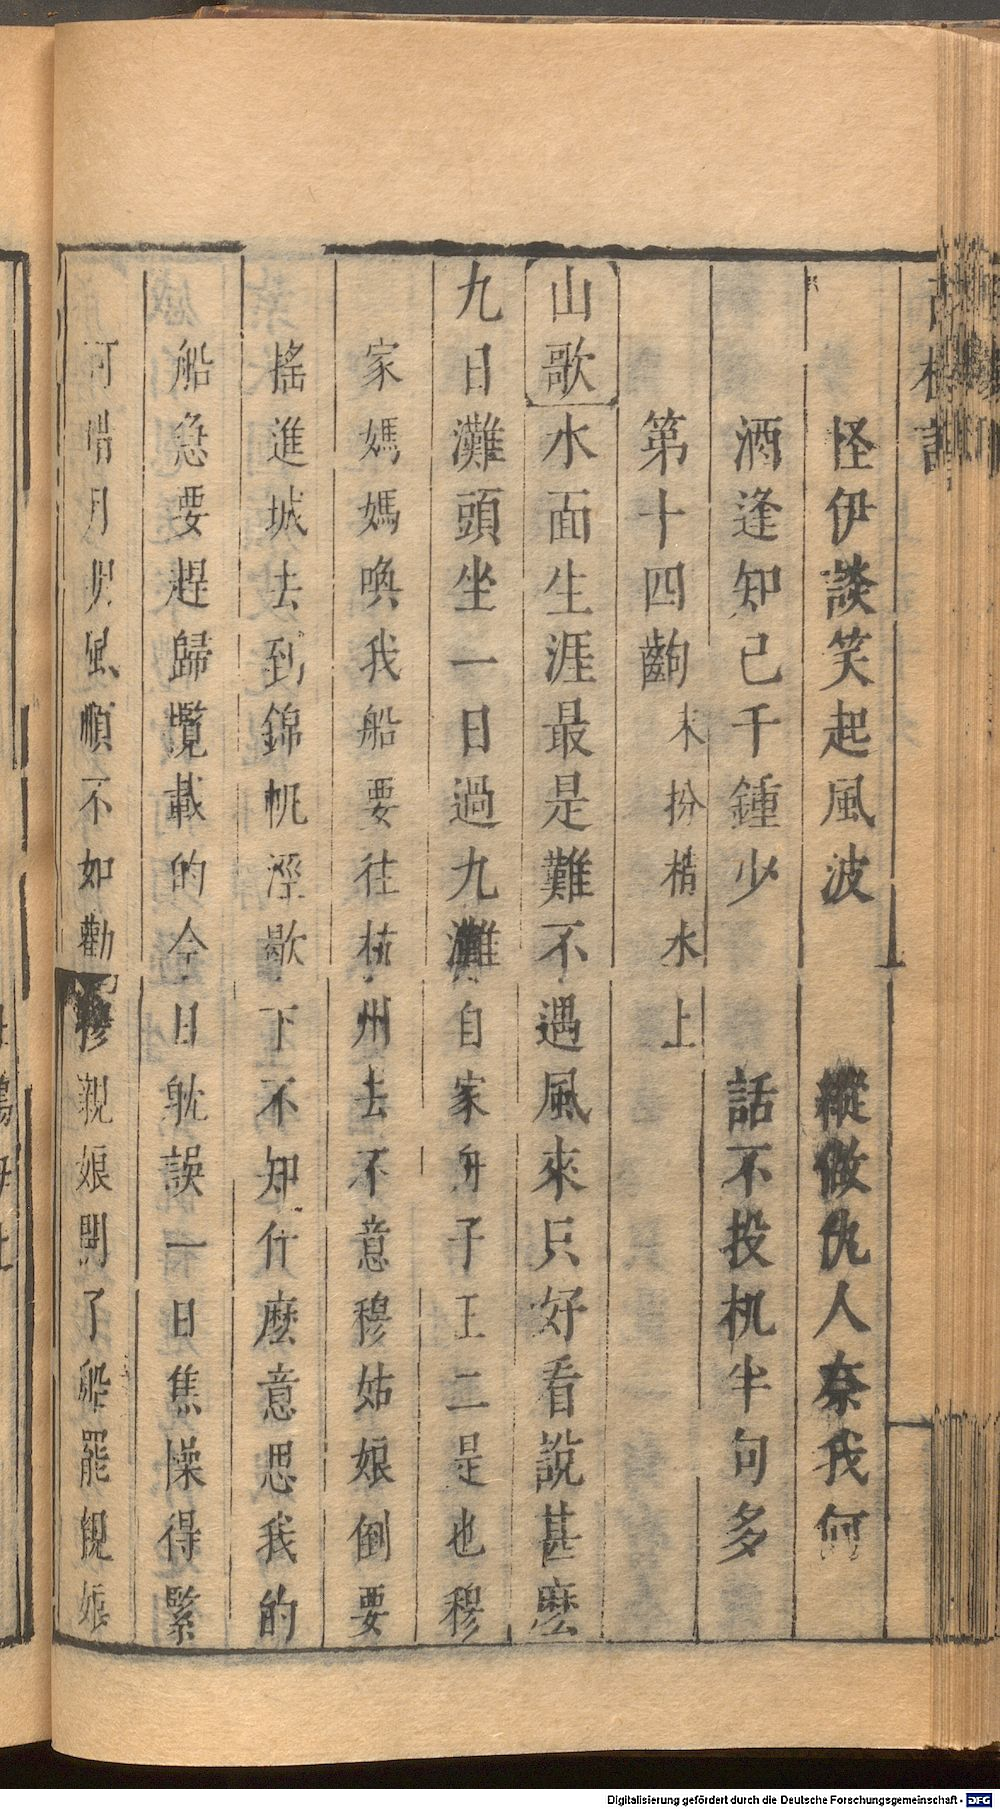 怪伊談笑起風波　縱做仇人奈我何
酒逢知己千鍾少　話不投机半句多
第十四齣 末扮梢水上
山歌水面生涯最是難不遇風來只好看說甚麼
九日灘頭坐一日過九灘自家舟子王二是也穆
家媽媽喚我船要往杭州去不意穆姑娘倒要
搖進城去到錦帆涇歇下不知什麼意思我的
船急要趕歸攬載的今日躭誤一日焦懆得緊
月明風順不如勸穆親娘開了船罷親娘
Digitalisierung gefördert durch die Deutsche Forschungsgemeinschaft - DFG